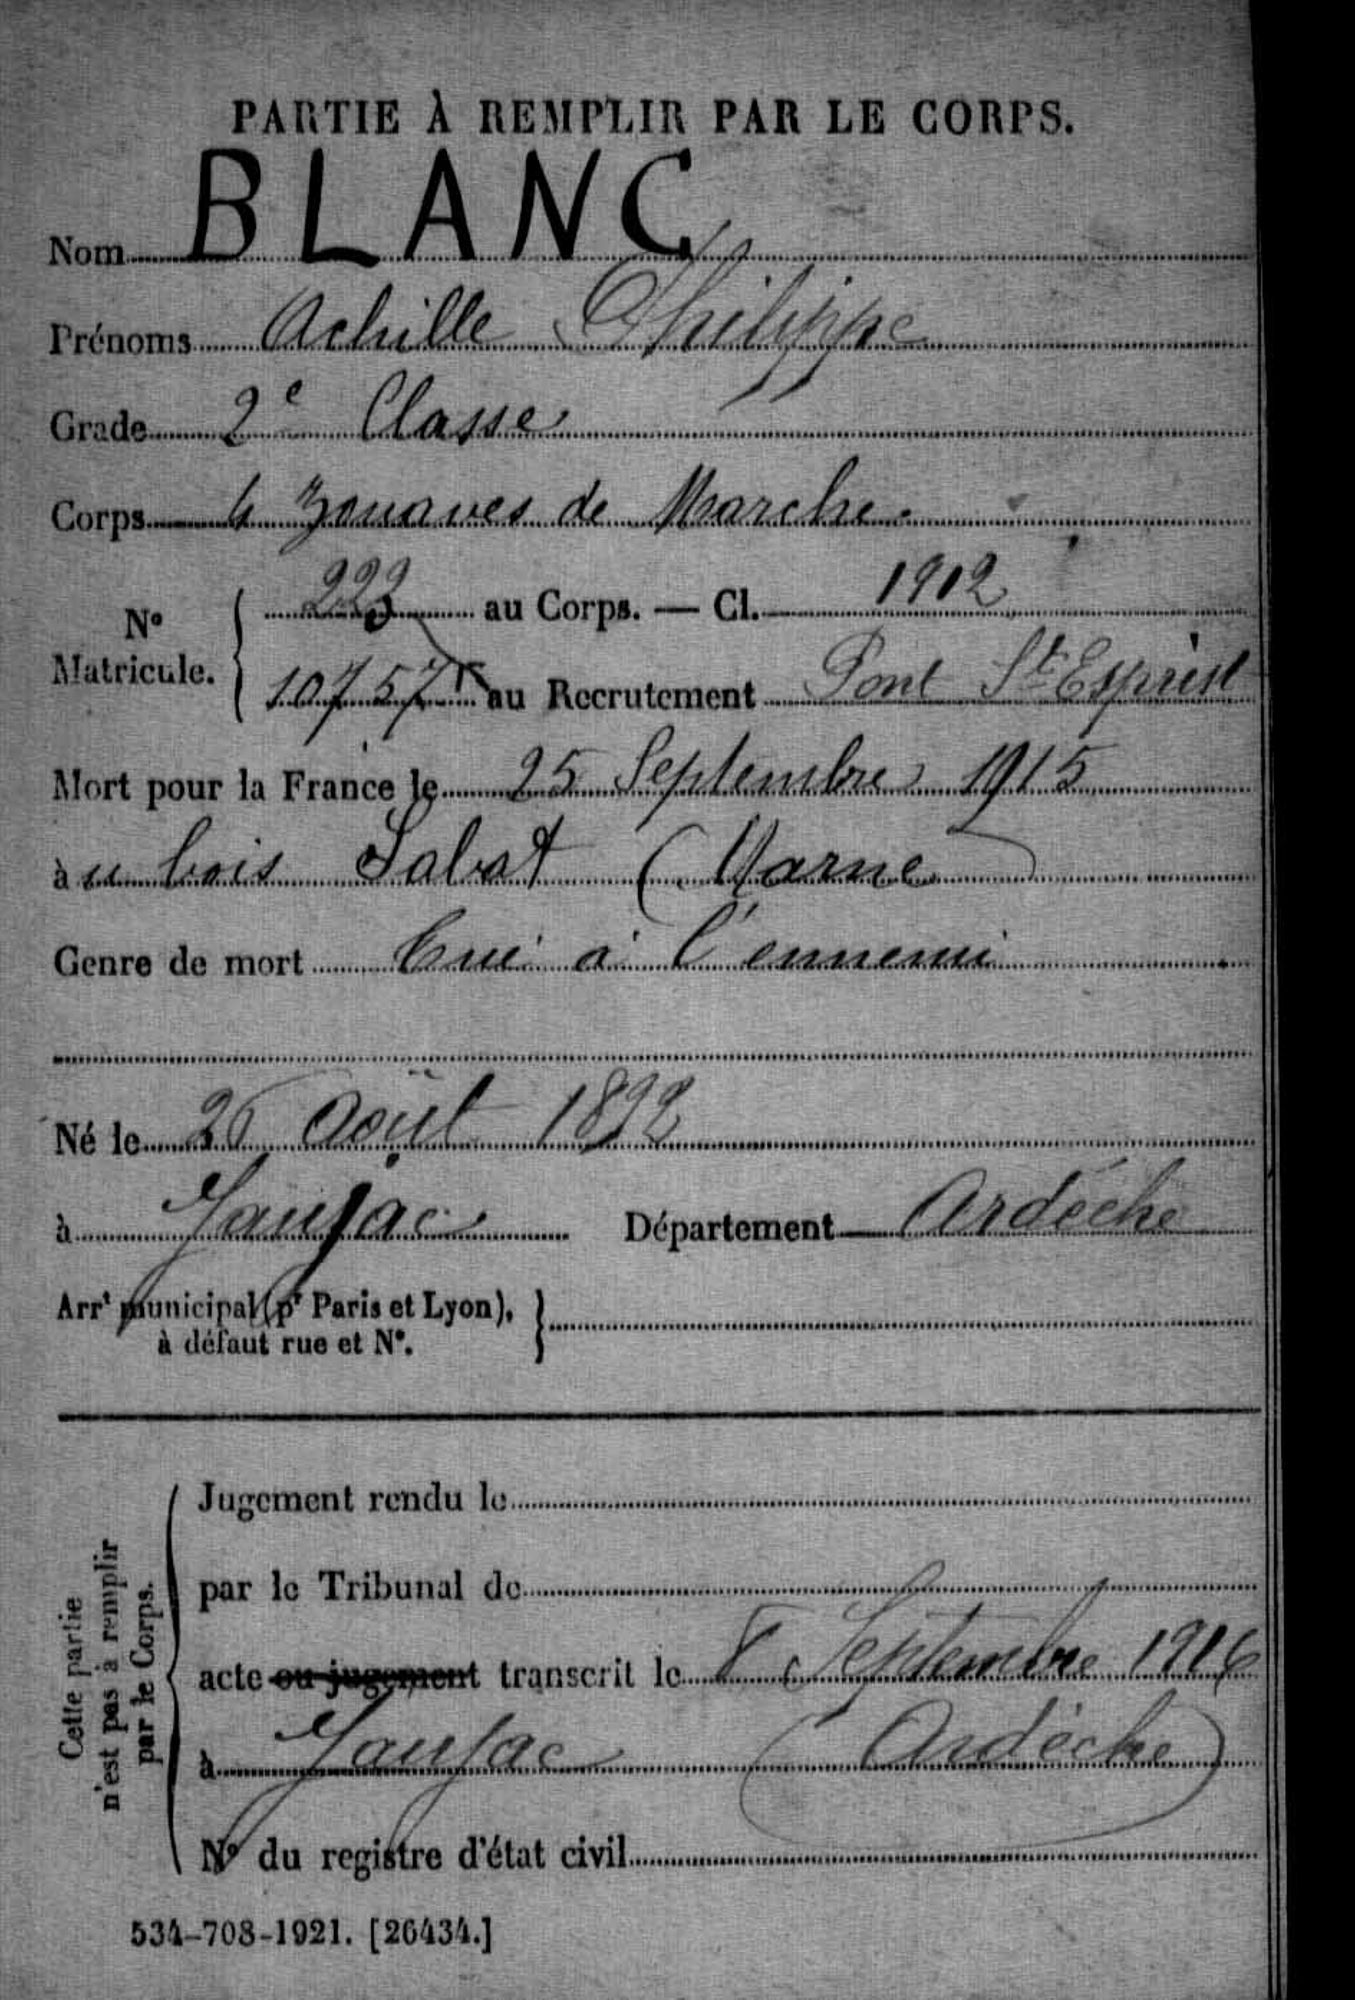 PARTIE À REMPLIR PAR LE CORPS.
Nom BLANC
Prénoms Achille Philippe
Grade 2e Classe
Corps 4 Zouaves de Marche.
No Matricule. { 223 au Corps. — Cl. 1912
10757 au Recrutement Pont St Esprit
Mort pour la France le 25 Septembre 1915
à u bois Sabot (Marne)
Genre de mort Tué à l'ennemi
Né le 26 Août 1892
à Jaujac Département Ardèche
Arrt municipal (pr Paris et Lyon), }
à défaut rue et No.
Cette partie
n'est pas à remplir
par le Corps.
Jugement rendu le
par le Tribunal de
acte ou jugement transcrit le 8 Septembre 1916
à Jaujac (Ardèche)
No du registre d'état civil
534-708-1921. [26434.]